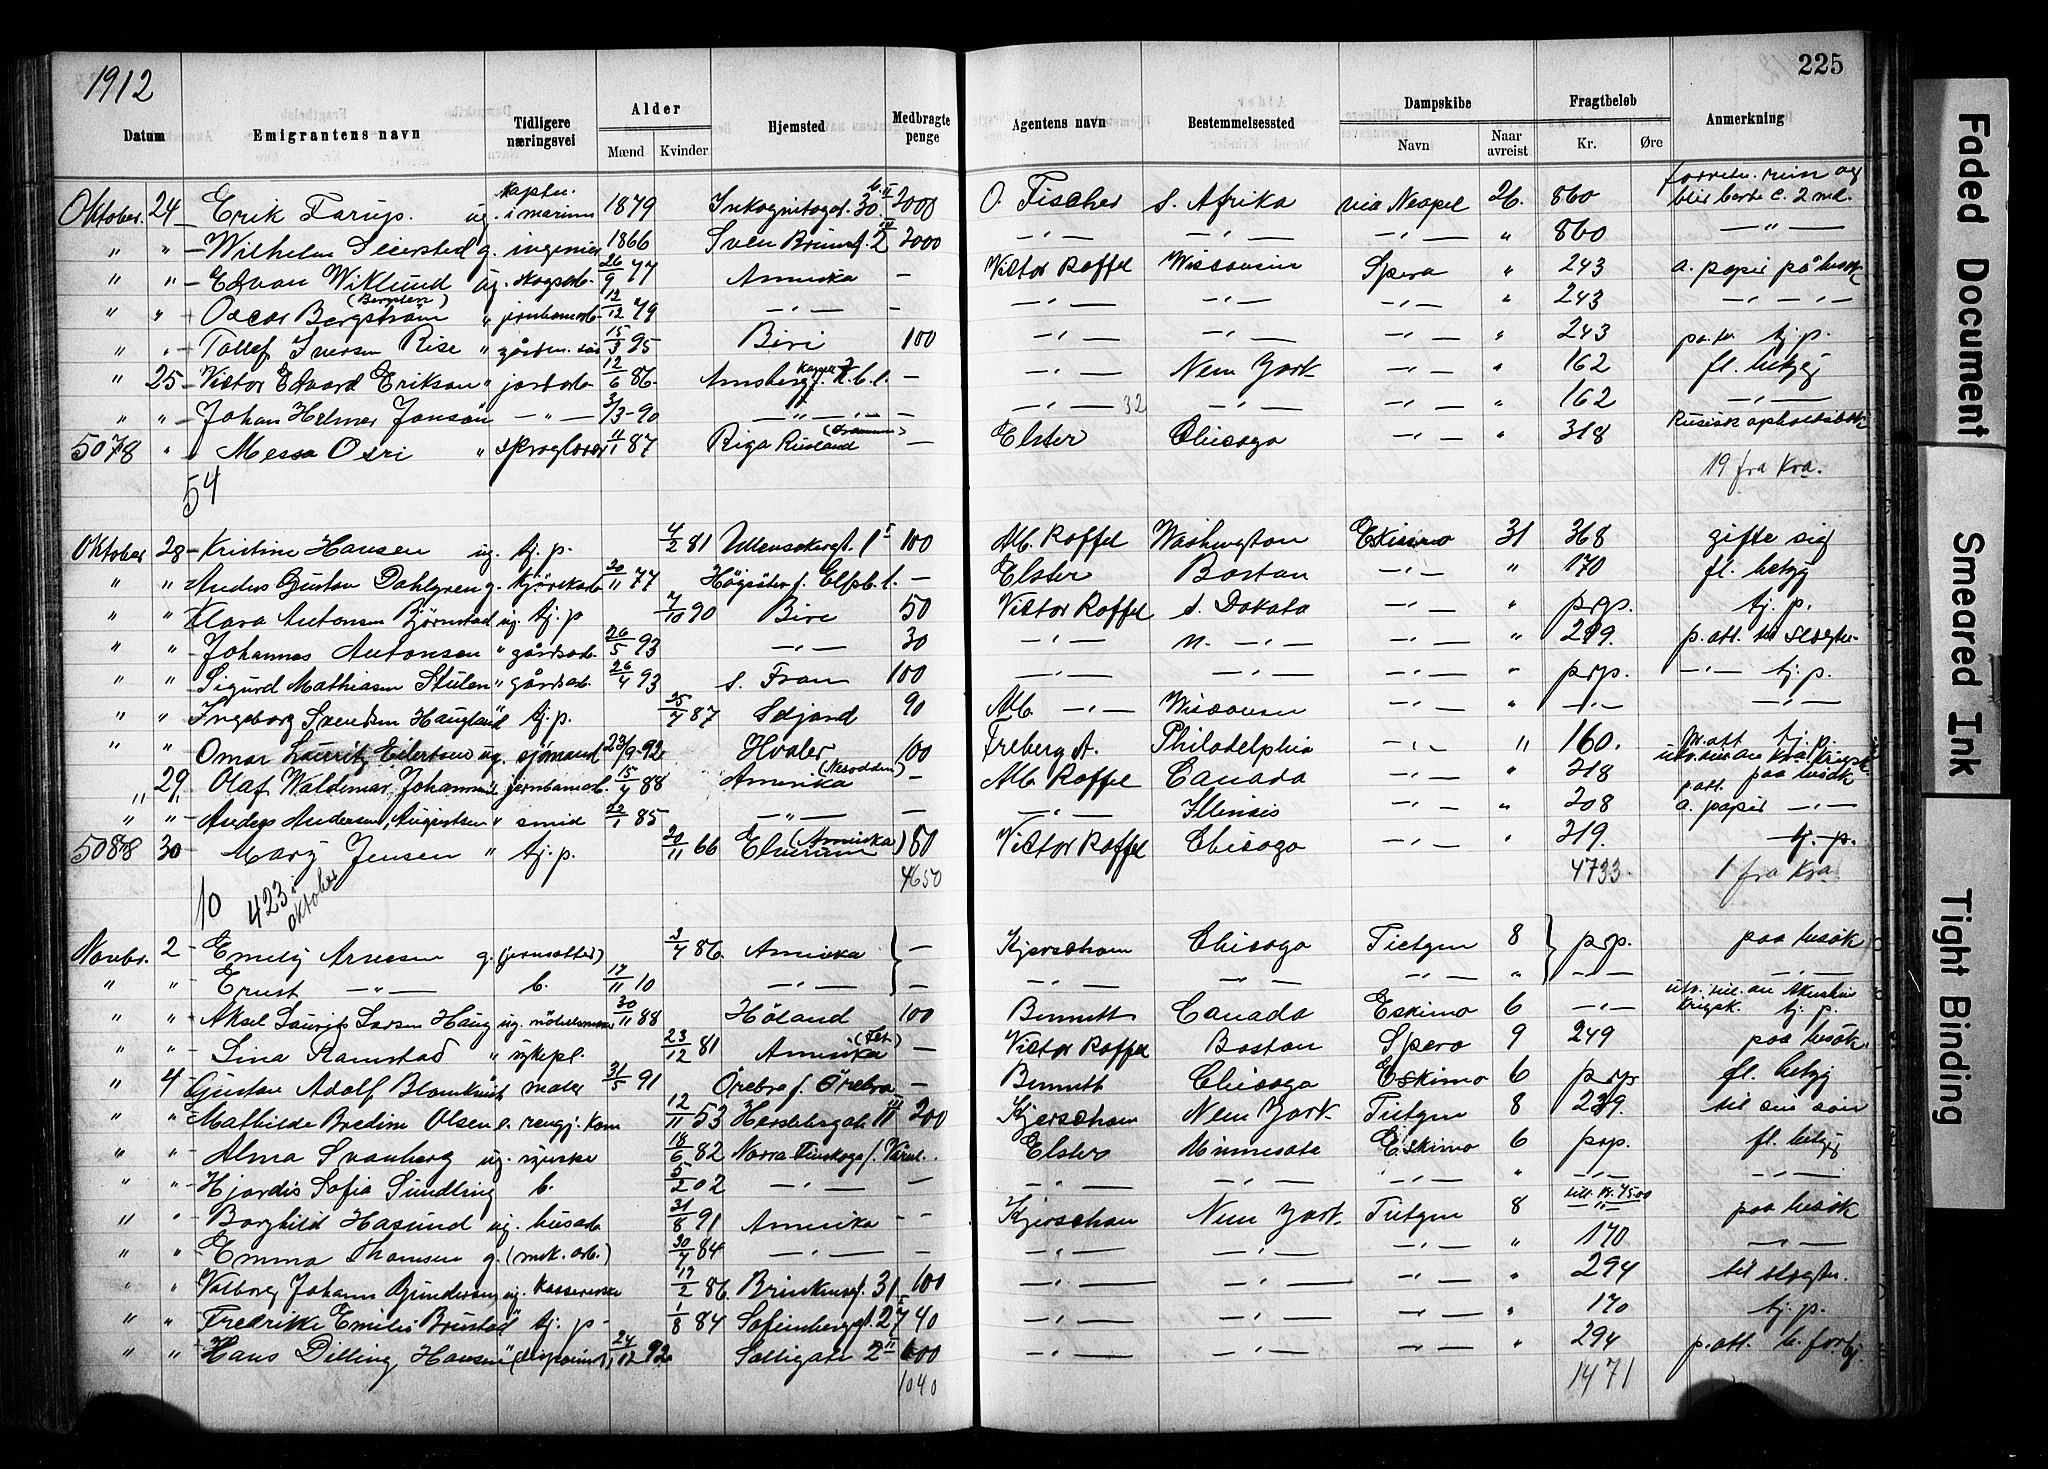 1912
225
Datum | Emigrantens navn | Tidligere næringsvei | Alder Mænd Kvinder | Hjemsted | Medbragte penge | Agentens navn | Bestemmelsessted | Dampskibe Navn Naar avreist | Fragtbeløb Kr. Øre | Anmerkning
Oktober 24 Erik Tarup ug. i marinen 1879 30 2000 O. Fischer S. Afrika via Neapel 26. 860 c. 2 md.
" " Wilhelm g. ingeniør 1866 Sven 2 2000 — " — — " — — " — " 860 — " —
" " Edvan Wiklund ug. skogsarb. 26/9 77 Amerika — Victor Roffel Wisconsin Spero " 243 a. papir på besøk
" " Oscar Bergström (Bergsten) " jernbanearb. 12/12 79 — " — — — " — — " — — " — " 243 — " — " —
" " Tollef Iversen Rise " 15/3 95 Biri 100 — " — — " — — " — " 243 tj. p.
" 25 Victor Edvard Erikson " jordarb. 12/6 86 — — " — New York — " — " 162 fl. betyg
" " Johan Helmer Jonson — " — 3/3 90 — " — " — — — " — 32 — " — — " — " 162 — " —
5078 " Messa Osri " 11/1 87 Riga Rusland — Elster Chicago — " — " 318 Rusisk
54
19 fra Kra.
Oktober 28 Kristine Hansen ug. tj. p. 4/2 81 1 100 Alb. Roffel Washington Eskimo 31 368 gifte sig
" " Anders Gustav Dahlgren g. 20/11 77 Högsäter f. Elfsb. l. — Elster Boston — " — " 170 fl. betyg
" " Klara Antonsen Bjørnstad ug. tj. p 7/10 90 Biri 50 Victor Roffel S. Dakota — " — " prp. tj. p.
" " Johannes Antonsen " gårdsarb. 26/5 93 — " — 30 — " — n. — " — — " — " 219. p. att. til slegtn.
" " Sigurd Mathiasen Stulen " gårdsarb. 26/4 93 S. Fron 100 — " — — " — — " — " prp. — " — tj. p.
" " Ingeborg Svendsen Haugland tj. p. 25/7 87 Seljord 90 Alb. — " — Wisconsin — " — " — " —
" " Omar Lauritz Eilertsen ug. sjömand 23/9 92 Hvaler 100 Freberg A. Philadelphia — " — " 160. m. att tj. p.
" 29 Olaf Waldemar Johannsen " jernbanearb. 15/4 88 Amerika (Nesodden) — Alb. Roffel Canada — " — " 218 p. att. paa besøk
" " Anders Andersen, Augustsen " smid 22/1 85 — " — — — " — Illinois — " — " 208 a. papir — " —
5088 30 Mary Jensen " tj. p. 20/11 66 Elverum (Amerika) 80 Victor Roffel Chicago — " — " 319. tj. p.
4650 4733. 1 fra Kra
10 423 i Oktober
Novbr. 2 Emely Arnesen g. 3/4 86. Amerika — Kjerschow Chicago Tietgen 8 prp. paa besøk
" " Ernst — " — b. 17/11 10 — " — — — " — — " — — " — " — " — — " —
" " Aksel Laurits Larsen Haug ug. 30/11 88 Höland 100 Bennett Canada Eskimo 6 — " — tj. p.
" " Lina Ramstad " sykepl. 23/12 81 Amerika (Fet) — Victor Roffel Boston Spero 9 249 paa besøk
" 4 Gustav Adolf Blomkvist maler 31/5 91 Örebro f. Örebro — Bennett Chicago Eskimo 6 prp fl. betyg
" " Mathilde Bredine Olsen e. rengj. kone 12/11 53 Herslebsgate 11 III 200 Kjerschow New York Tietgen 8 239. til sin sön
" " Alma Svanberg ug. syerske 18/6 82 Norra Finskoga f. Värml. — Elster Minnesota Eskimo 6 prp. fl. betyg
" " Hjördis Sofia Sundling b. 5/2 02 — " — — — " — — " — — " — " — " — — " —
" " Borghild Haslund ug. husarb 31/8 91 Amerika — Kjerschow New York Tietgen 8 — " — paa besøk
" " Emma Thomsen g. (mek. arb.) 30/4 84 — " — — — " — — " — — " — " 170 — " —
" " Valborg Johanne Gundersen ug. kassererske 17/2 86. 31 100 — " — — " — — " — " 294 til slegtn.
" " Fredrikke Emilie Brustad " tj. p. 1/8 84 Sofienberggt. 27 40 — " — — " — — " — " 170 tj. p.
" " Hans Dilling Hansen " 24/12 92 Solligate 2 II 600 — " — — " — — " — " 294 p. att.
1040 1471
Faded Document
Smeared Ink
Tight Binding